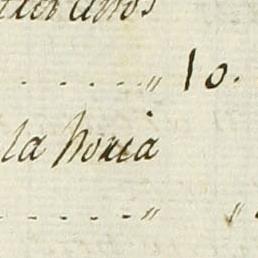 . . . . . . . " 10.
la Noria
. . . . . . . " "